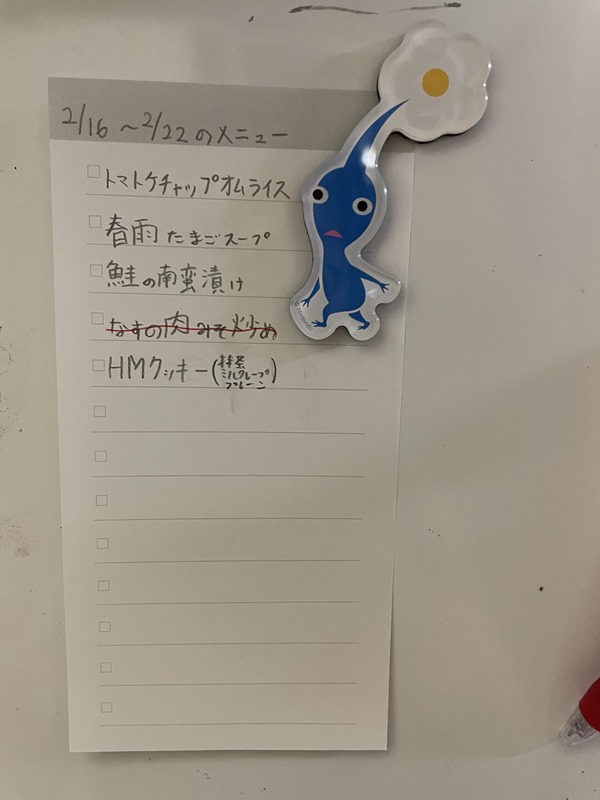 2/16 ~ 2/22 のメニュー
トマトケチャップオムライス
春雨たまごスープ
鮭の南蛮漬け
なすの肉みそ炒め
HMクッキー(抹茶
ミルクレープ
プレーン)
©Nintendo